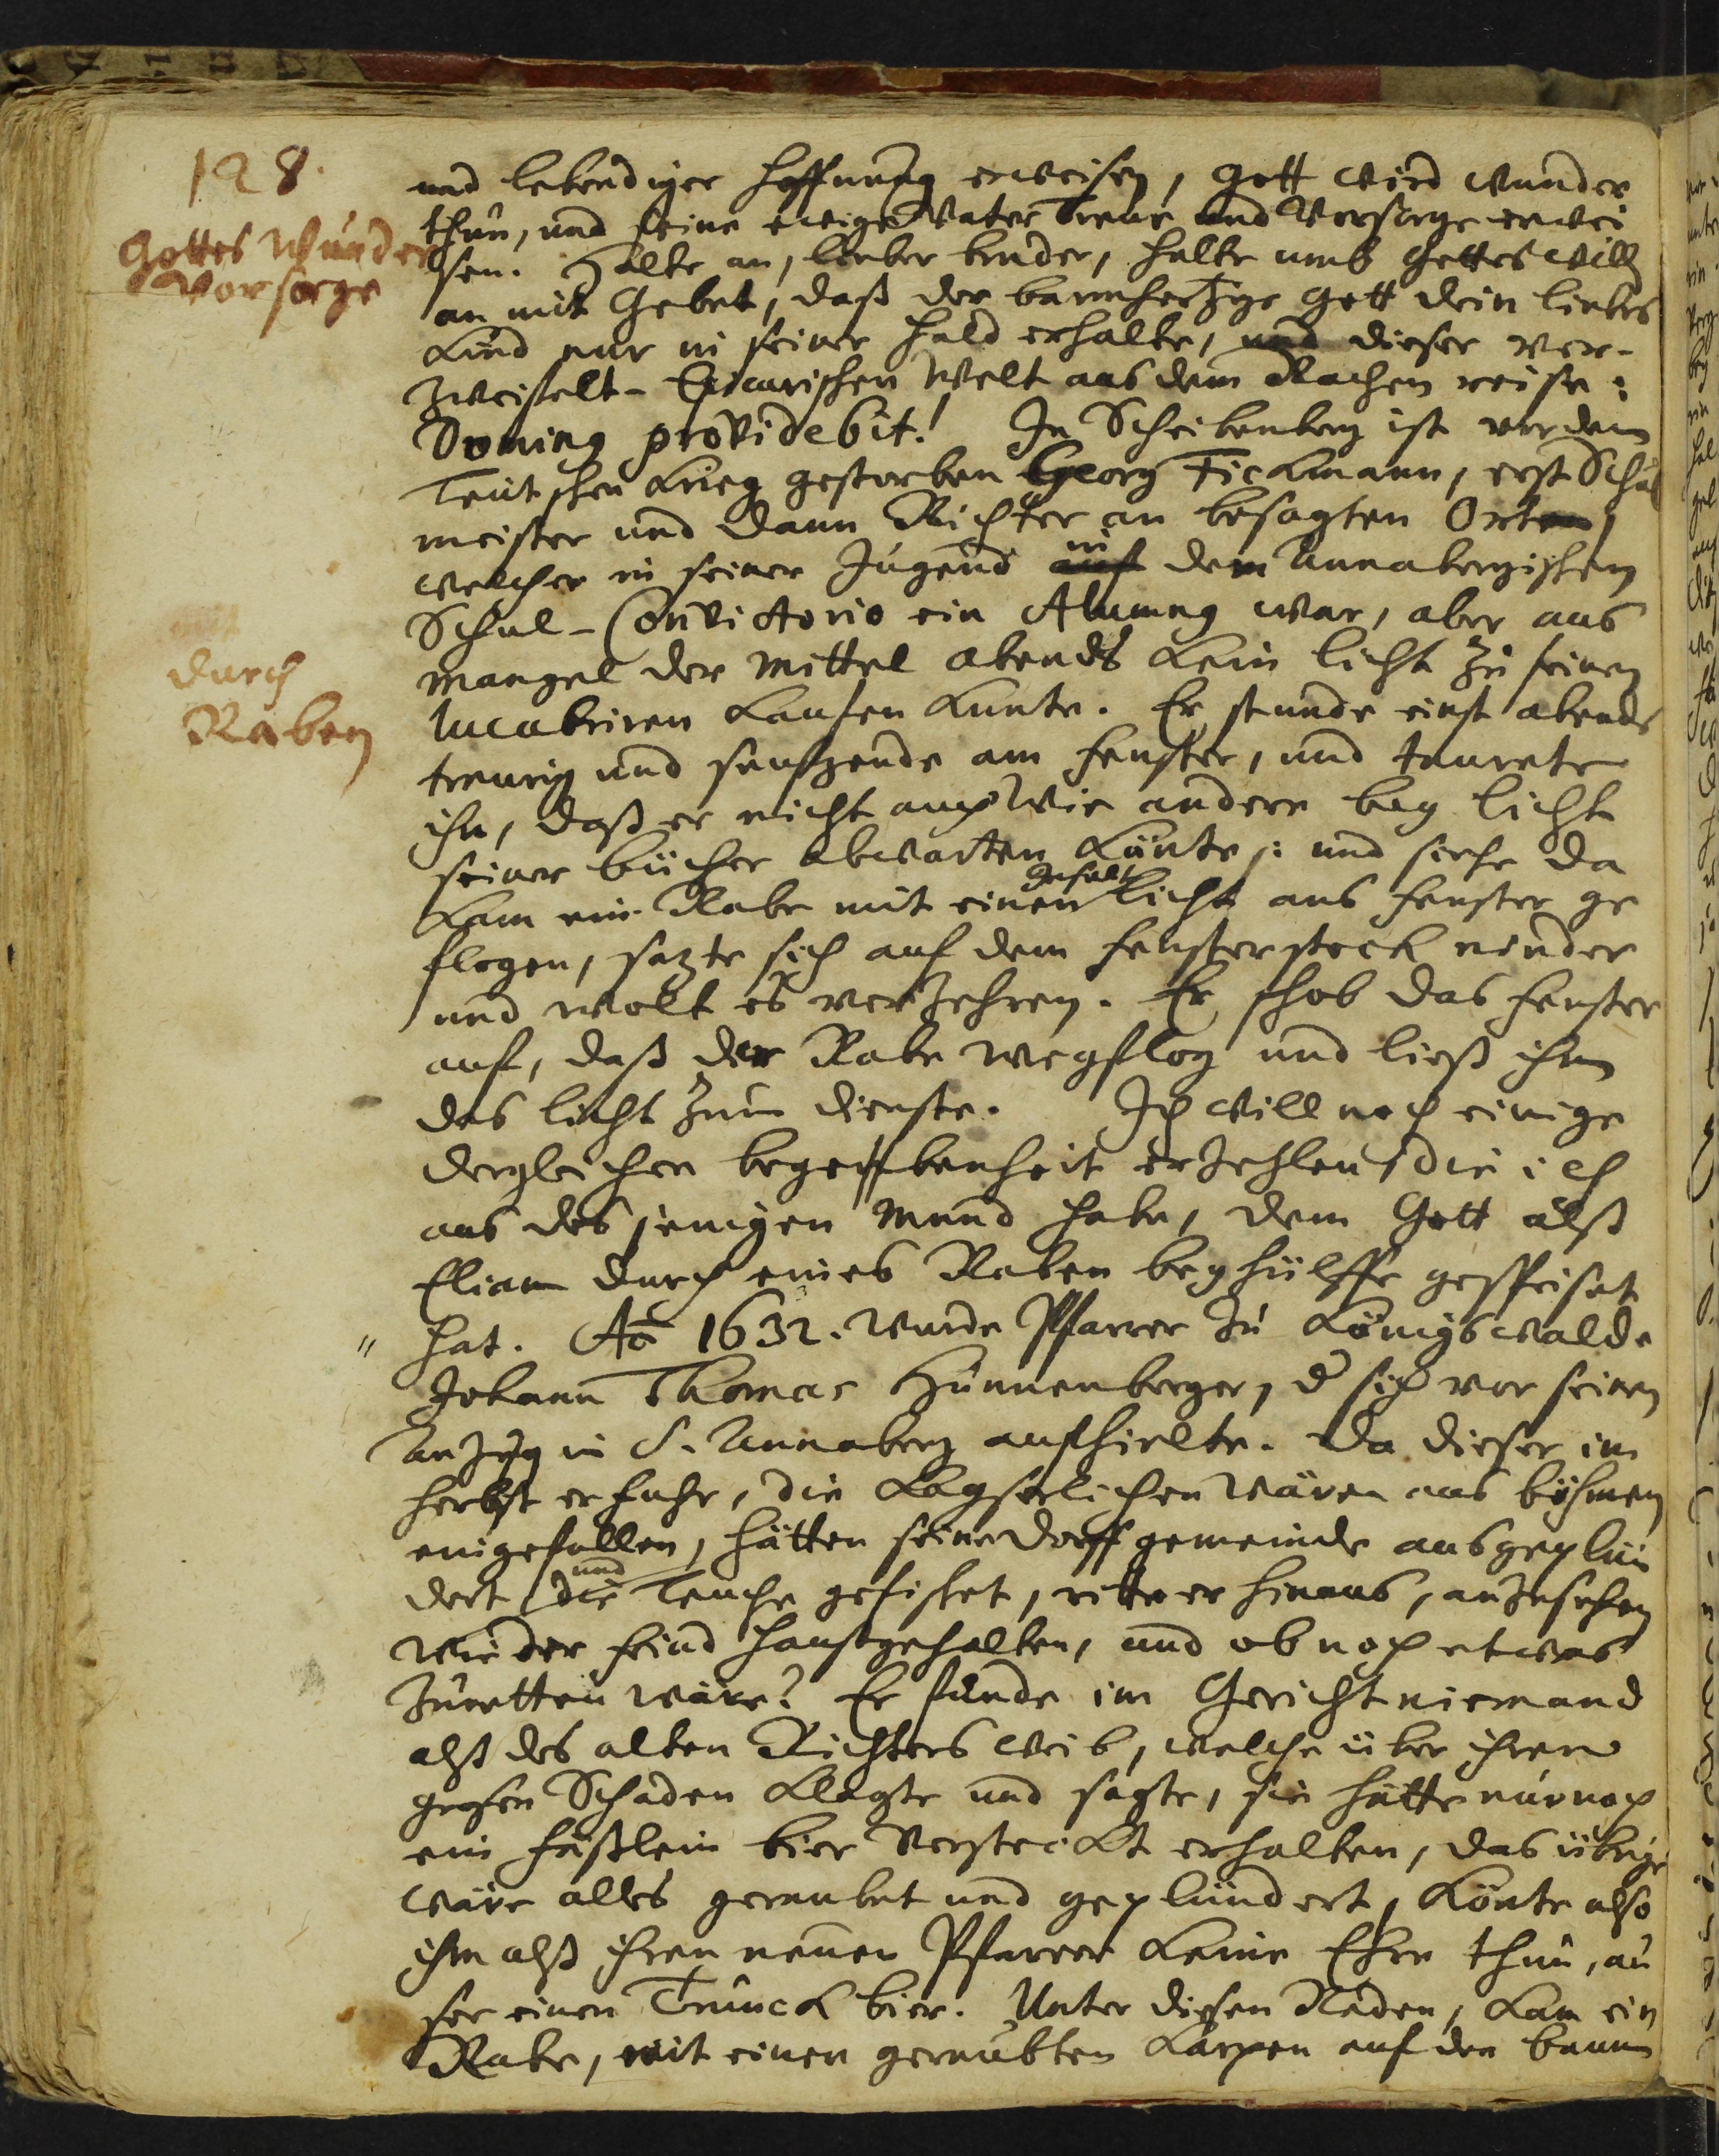 128.
Gottes Wunder
Vorsorge
und lebendiger hoffnung erweisen, Gott wird wunder
thun, und seine ewige Vater Treue und Vorsorge erwei
sen. Halte an, lieber bruder, halte umb Gottes will
an mit Gebet, daß der barmhertzige Gott dein liebes
Kind nur in seiner huld erhalte, und dieser ver-
zweifelt- Epicurischen Welt aus dem Rachen reise:
Dominus providebit! In Scheibenberg ist vor dem
Teutschen Krieg gestorben Georg Fickmann, erst Schul
meister und dann Richter an besagten Orten,
welcher in seiner Jugend auf in dem Annabergischen
Schul-Convictorio ein Alumnus war, aber aus
mangel der Mittel abends kein licht zu seinen
durch
Raben
lucubriren kaufen kunte. Er stunde einst abends
traurig und seufzende am fenster, und taurete
ihn, daß er nicht auch wie andere bey licht
seiner bücher abwarten könte: und siehe da
kam ein Rabe mit einen Inselt licht ans fenster ge
flogen, satzte sich auf dem fensterstock nieder
und wolt es verzehren. Er schob das fenster
auf, daß der Rabe wegflog und ließ ihm
das licht zum dienste. Ich will noch einige
dergleichen begebenheit erzehlen, die ich
aus des jenigen Mund habe, dem Gott alß
Eliam durch eines Raben beyhülffe gespeiset
" hat. Ao 1632. wurde Pfarrer zu Königswalde
Johann Thomas Hünnenberger, d sich vor seinen
Anzug in S. Annaberg aufhielte. Da dieser im
herbst erfuhr, die Kayserlichen wären aus böhmen
eingefallen, hätten seine dorffgemeinde ausgeplün
dert und die Teuche gefischet, ritte er hinaus, anzusehen
wie der feind hauß gehalten, und ob noch etwas
zuretten wäre? Er funde im Gericht niemand
alß des alten Richters weib, welche über ihren
grosen Schaden klagte und sagte, sie hätte nur noch
ein fäßlein bier versteckt erhalten, das übrige
wäre alles geraubet und geplündert, könte also
ihm alß ihren neuen Pfarrer keine Ehre thun, au
ser einen Trunck bier. Unter diesen Reden, kam ein
Rabe, mit einen geraubten Karpen auf den baum